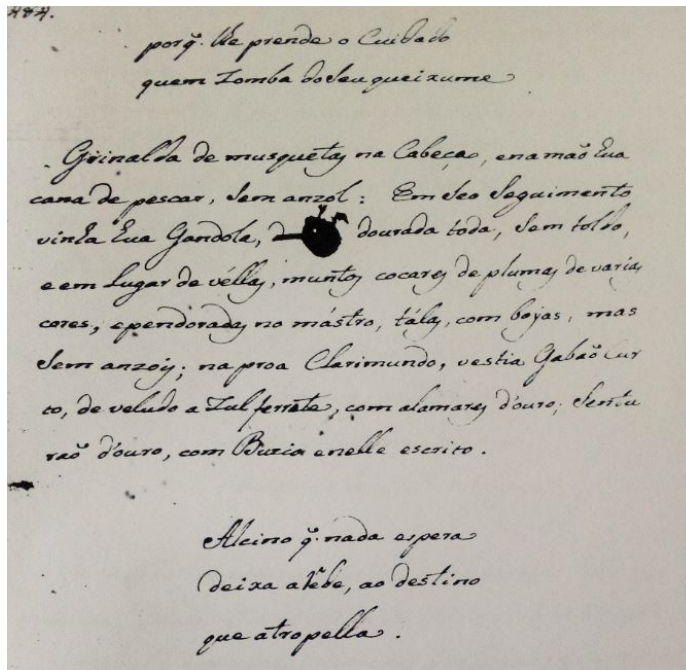 484.
porq̃. lhe prende o Cuidado
quem Zomba do seu queixume
Grinalda de musquetas na Cabeça, ena maõ hua
cana de pescar, sem anzol: Em seo seguimento
vinha hua Gandola, dourada toda, sem toldo,
e em lugar de véllas, muntos cocares de plumas de varias
cores, ependorados no mástro, tálas, com boyas, mas
sem anzoys; na proa Clarimundo, vestia Gabaõ Cur
to, de veludo a Zul ferrete, com alamares d'ouro; Sentu
raõ d'ouro, com Buzios enelle escrito.
Alcino q̃. nada espera
deixa ao destino
que atropella.